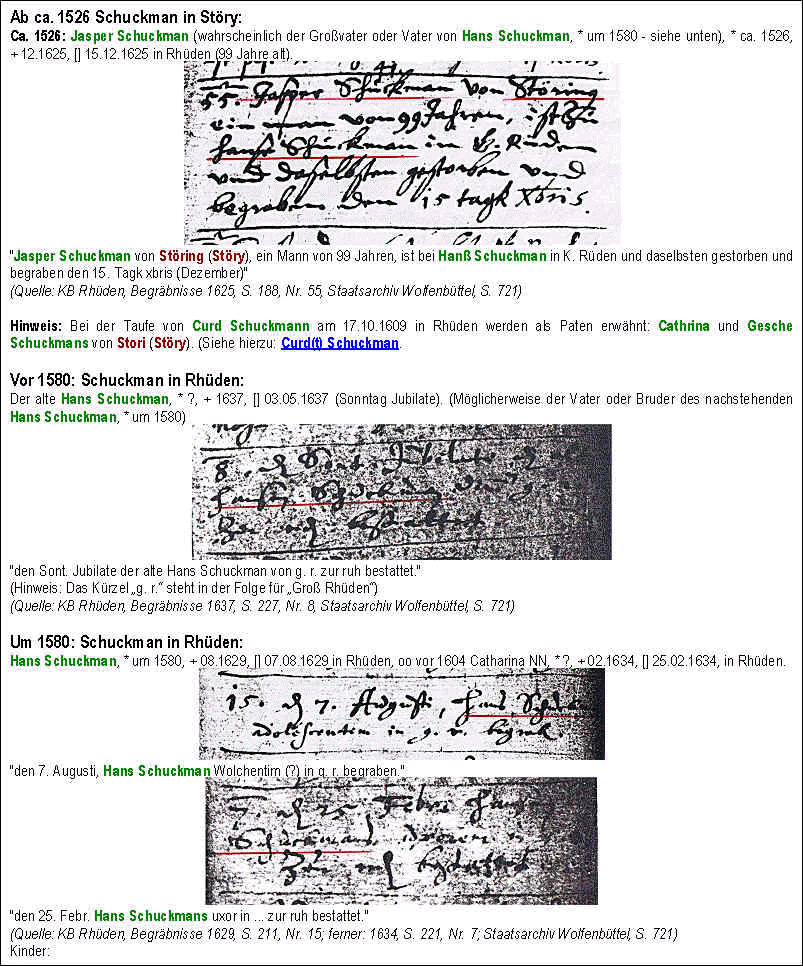 Ab ca. 1526 Schuckman in Störy:
Ca. 1526: Jasper Schuckman (wahrscheinlich der Großvater oder Vater von Hans Schuckman, * um 1580 - siehe unten), * ca. 1526,
+ 12.1625, [] 15.12.1625 in Rhüden (99 Jahre alt).
55. Jasper Schuckman von Störing
ein man von 99 Jahren, ist bei
Hanß Schuckman in K. Rüden
und daselbsten gestorben und
begraben den 15 tagk Xbris.
"Jasper Schuckman von Störing (Störy), ein Mann von 99 Jahren, ist bei Hanß Schuckman in K. Rüden und daselbsten gestorben und
begraben den 15. Tagk xbris (Dezember)"
(Quelle: KB Rhüden, Begräbnisse 1625, S. 188, Nr. 55, Staatsarchiv Wolfenbüttel, S. 721)
Hinweis: Bei der Taufe von Curd Schuckmann am 17.10.1609 in Rhüden werden als Paten erwähnt: Cathrina und Gesche
Schuckmans von Stori (Störy). (Siehe hierzu: Curd(t) Schuckman.
Vor 1580: Schuckman in Rhüden:
Der alte Hans Schuckman, * ?, + 1637, [] 03.05.1637 (Sonntag Jubilate). (Möglicherweise der Vater oder Bruder des nachstehenden
Hans Schuckman, * um 1580)
8. d Sont. Jubilate d
Hans Schuckman
"den Sont. Jubilate der alte Hans Schuckman von g. r. zur ruh bestattet."
(Hinweis: Das Kürzel „g. r.“ steht in der Folge für „Groß Rhüden“)
(Quelle: KB Rhüden, Begräbnisse 1637, S. 227, Nr. 8, Staatsarchiv Wolfenbüttel, S. 721)
Um 1580: Schuckman in Rhüden:
Hans Schuckman, * um 1580, + 08.1629, [] 07.08.1629 in Rhüden, oo vor 1604 Catharina NN, * ?, + 02.1634, [] 25.02.1634, in Rhüden.
15. d 7. Augusti, Hans
in g. r. begrab.
"den 7. Augusti, Hans Schuckman Wolchentim (?) in g. r. begraben."
7. d 25 Febr. Hans
Schuckmans uxor
"den 25. Febr. Hans Schuckmans uxor in ... zur ruh bestattet."
(Quelle: KB Rhüden, Begräbnisse 1629, S. 211, Nr. 15; ferner: 1634, S. 221, Nr. 7; Staatsarchiv Wolfenbüttel, S. 721)
Kinder: